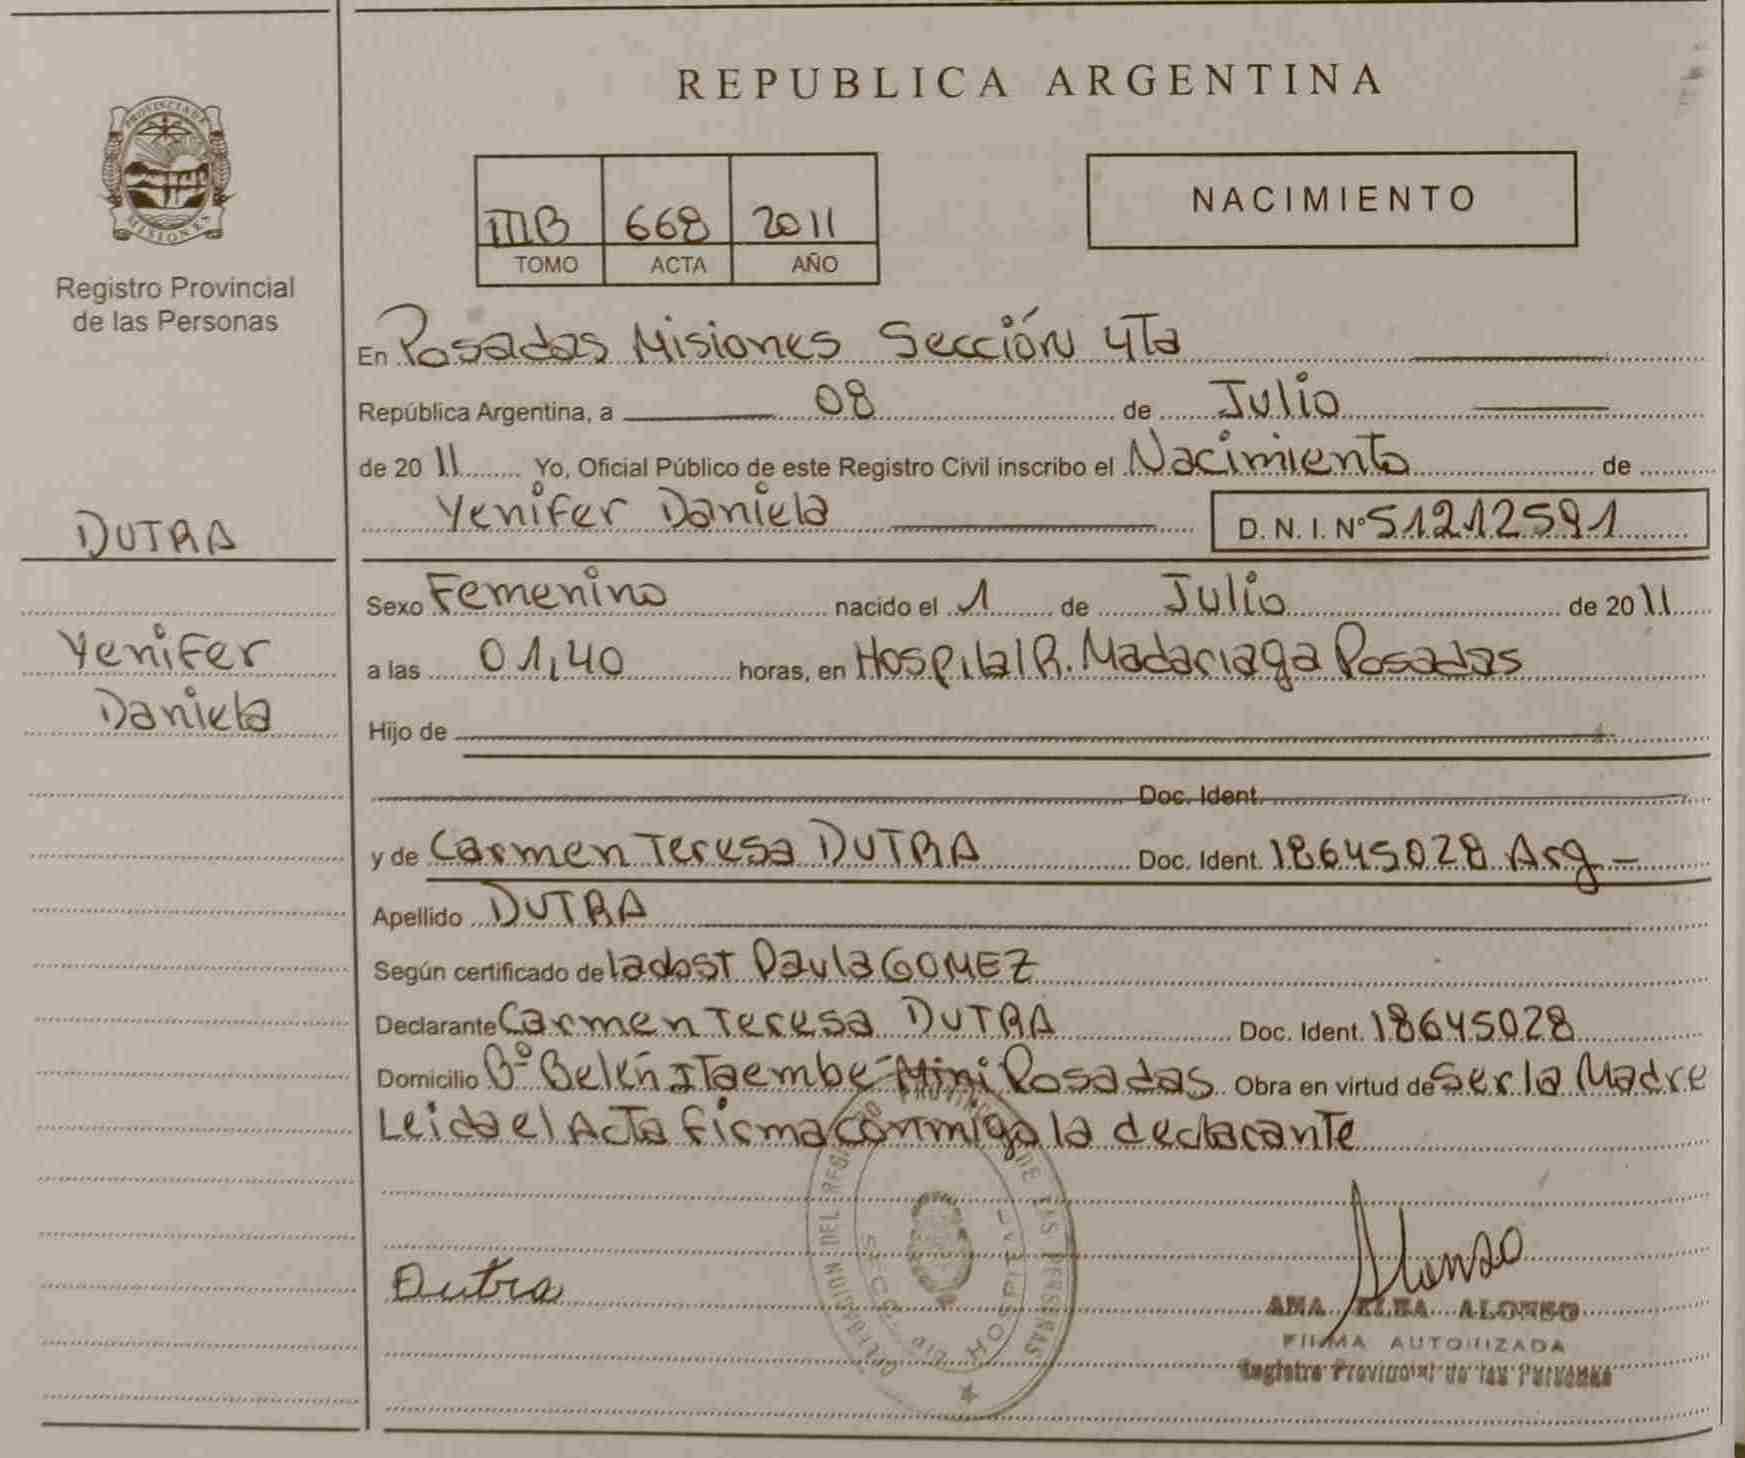 REPUBLICA ARGENTINA
PROVINCIA DE MISIONES
Registro Provincial
de las Personas
IIIB 668 2011
TOMO ACTA AÑO
NACIMIENTO
En Posadas Misiones Sección 4Ta
República Argentina, a 08 de Julio
de 2011 Yo, Oficial Público de este Registro Civil inscribo el Nacimiento de
Yenifer Daniela D. N. I. Nº 51212591
DUTRA
Yenifer
Daniela
Sexo Femenino nacido el 1 de Julio de 2011
a las 01,40 horas, en Hospital R. Madariaga Posadas
Hijo de
Doc. Ident.
y de Carmen Teresa DUTRA Doc. Ident. 18645028 Arg –
Apellido DUTRA
Según certificado de la obst Paula GOMEZ
Declarante Carmen Teresa DUTRA Doc. Ident. 18645028
Domicilio Bº Belén Itaembé Mini Posadas Obra en virtud de Ser la Madre
Leida el Acta firma conmigo la declarante
Dutra
Alonso
ANA ELBA ALONSO
FIRMA AUTORIZADA
Registro Provincial de las Personas